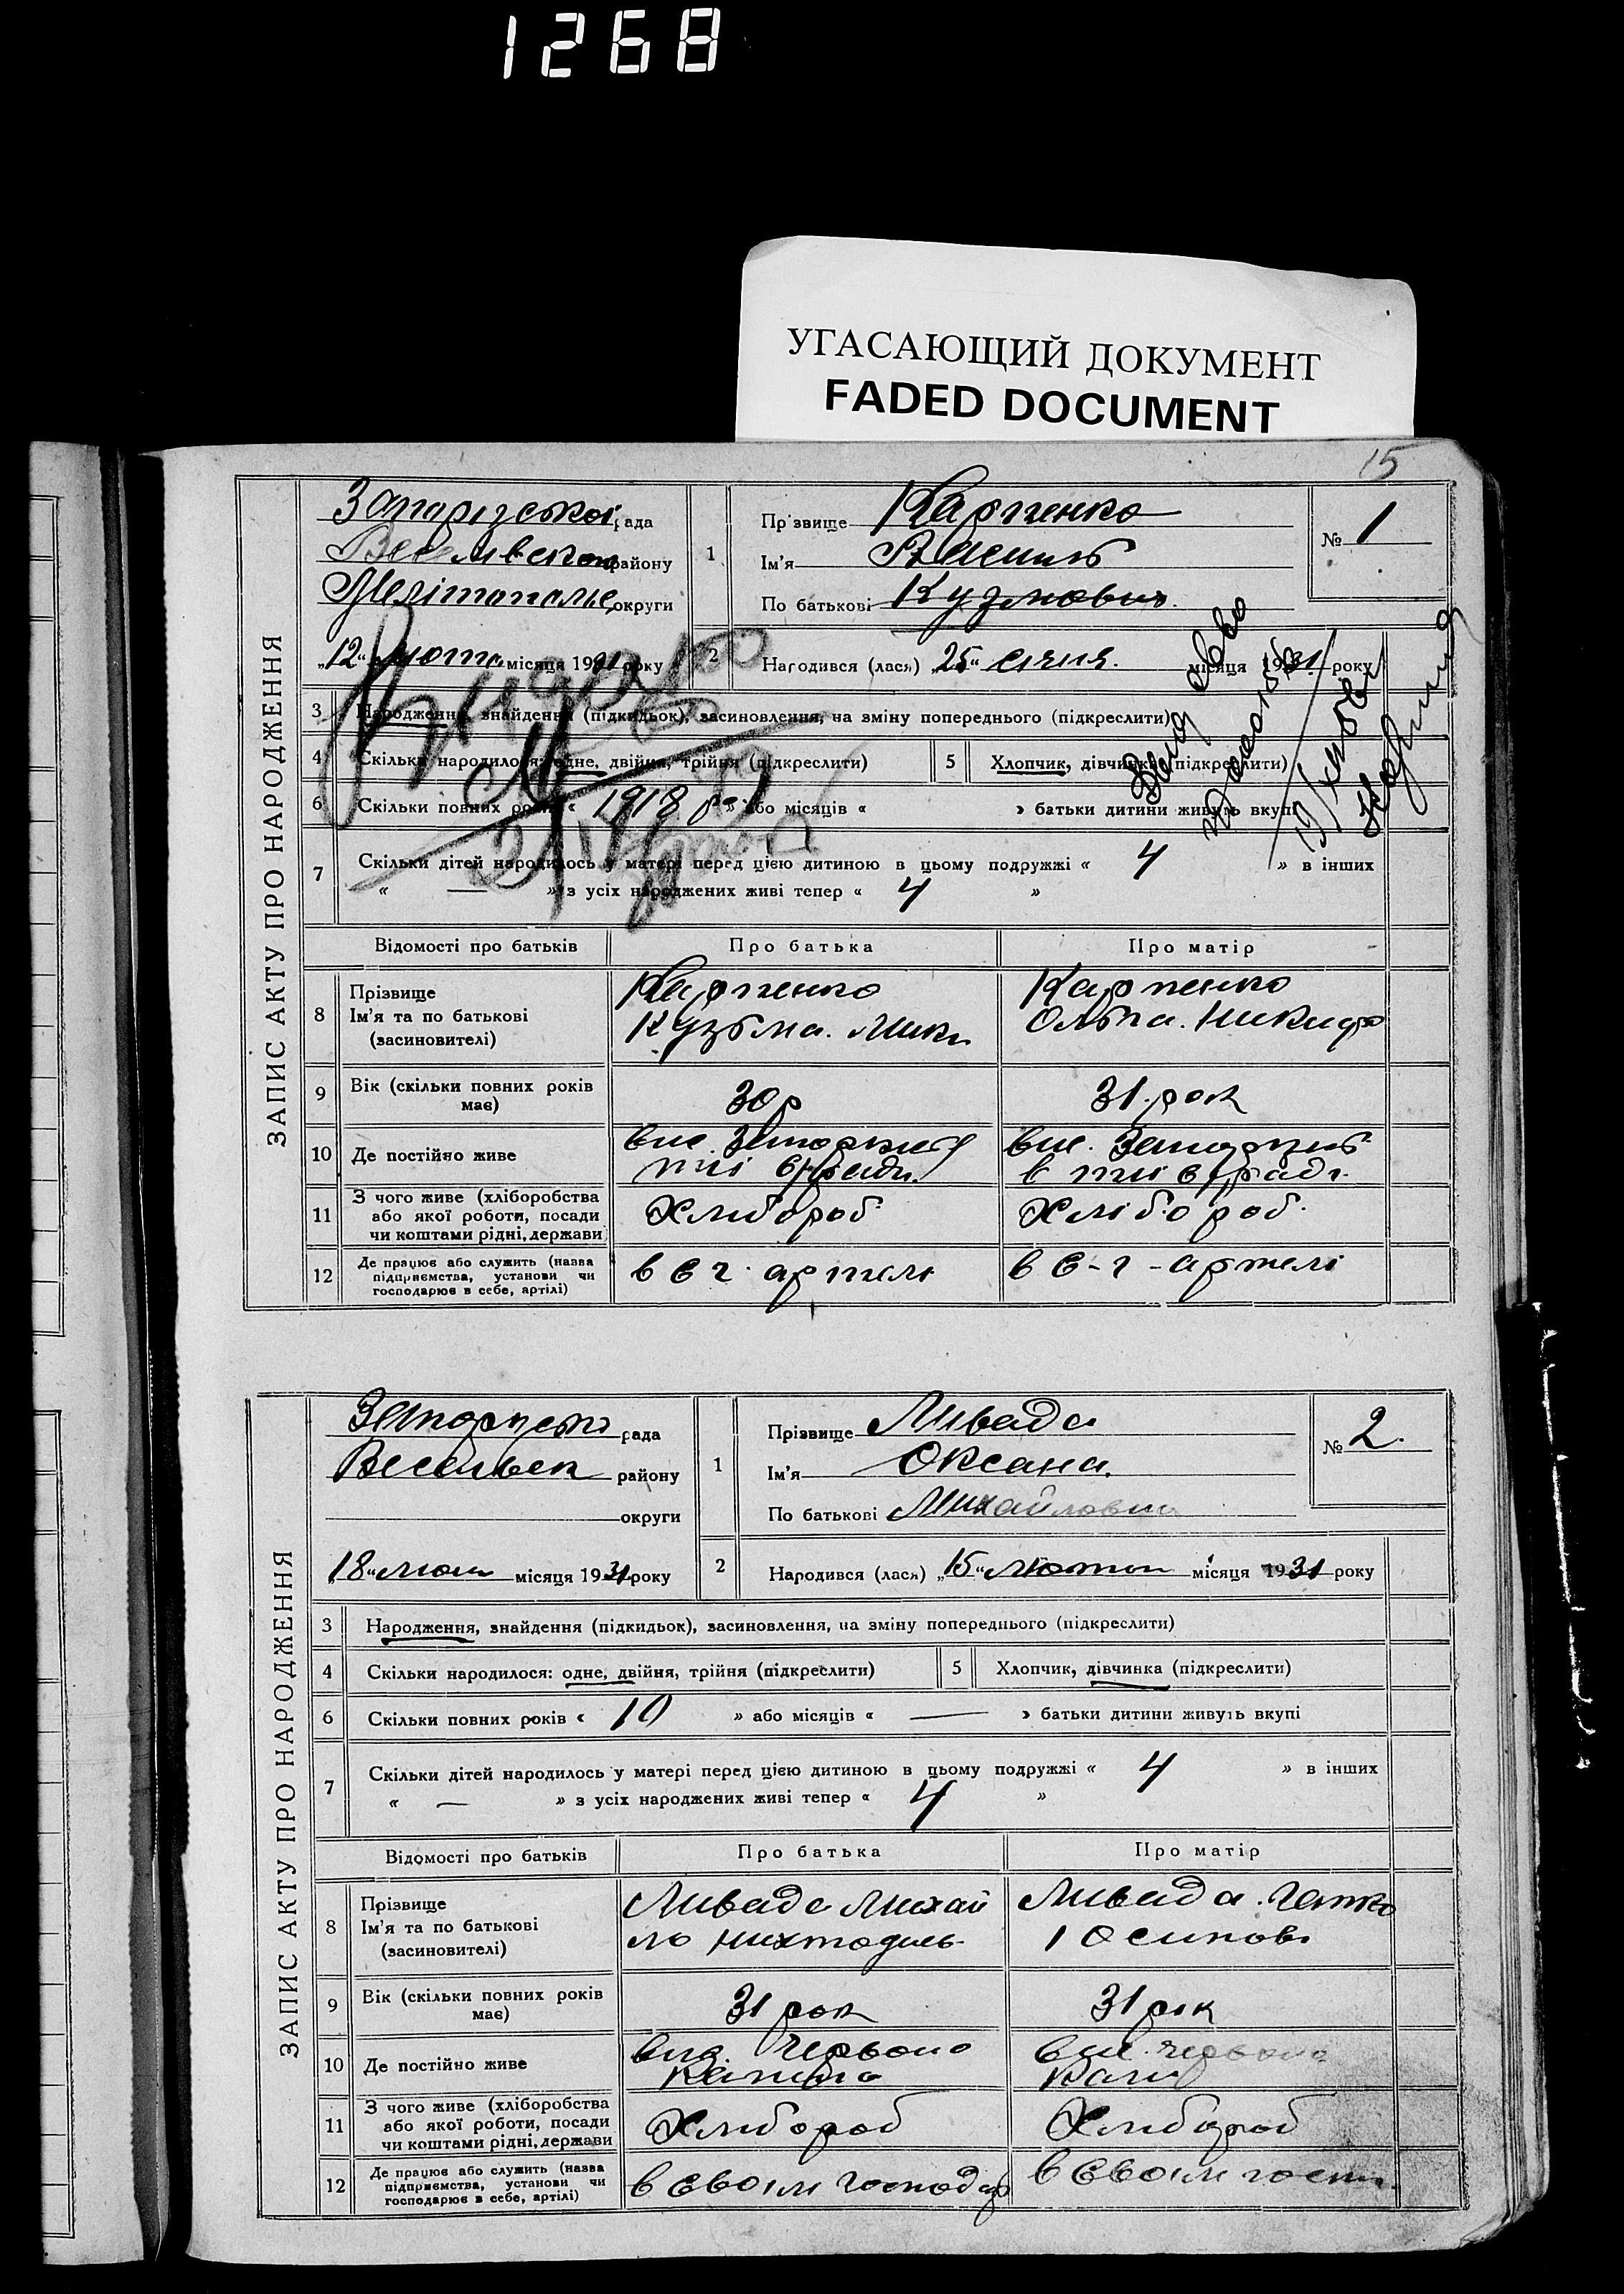 1268
УГАСАЮЩИЙ ДОКУМЕНТ
FADED DOCUMENT
15
ЗАПИС АКТУ ПРО НАРОДЖЕННЯ
Запорізької рада
району
округи
"12" люта місяця 1931 року
1
Прізвище Карпенко
Ім'я Василь
По батькові Кузмович.
№ 1
2
Народився (лася) "25" січня. місяця 1931 року
3 Народження, знайдення (підкидьок), засиновлення, на зміну попереднього (підкреслити)
4 Скільки народилося: одне, двійня, трійня (підкреслити)
5 Хлопчик, дівчинка (підкреслити)
6 Скільки повних років « 1918 р » або місяців « » батьки дитини живуть вкупі
7 Скільки дітей народилось у матері перед цією дитиною в цьому подружжі « 4 » в інших
« — » з усіх народжених живі тепер « 4 »
Відомості про батьків Про батька Про матір
8 Прізвище
Ім'я та по батькові
(засиновителі)
Карпенко
Кузьма. Мики
Карпенко
Ольга. Никиф
9 Вік (скільки повних років
має)
30 р
31. рок
10 Де постійно живе
11 З чого живе (хліборобства
або якої роботи, посади
чи коштами рідні, держави
Хлибороб
Хлібороб.
12 Де працює або служить (назва
підприємства, установи чи
господарює в себе, артілі)
в С г. артели
в С-г-артелі
ЗАПИС АКТУ ПРО НАРОДЖЕННЯ
рада
Весельвск району
округи
"18" лют місяця 1931 року
1
ПрізвищеЛивада
Ім'я Оксана.
По батькові Михайловна
№ 2.
2
Народився (лася) "15" лютого місяця 1931 року
3 Народження, знайдення (підкидьок), засиновлення, на зміну попереднього (підкреслити)
4 Скільки народилося: одне, двійня, трійня (підкреслити)
5 Хлопчик, дівчинка (підкреслити)
6 Скільки повних років « 10 » або місяців « — » батьки дитини живуть вкупі
7 Скільки дітей народилось у матері перед цією дитиною в цьому подружжі « 4 » в інших
« — » з усіх народжених живі тепер « 4 »
Відомості про батьків Про батька Про матір
8 Прізвище
Ім'я та по батькові
(засиновителі)
Ливада Михай
ло
Ливада.
Осипов
9 Вік (скільки повних років
має)
31 рок
31 рок
10 Де постійно живе
11 З чого живе (хліборобства
або якої роботи, посади
чи коштами рідні, держави
Хлибороб
Хлибороб
12 Де працює або служить (назва
підприємства, установи чи
господарює в себе, артілі)
в Своїм господар
в Своїм госп.